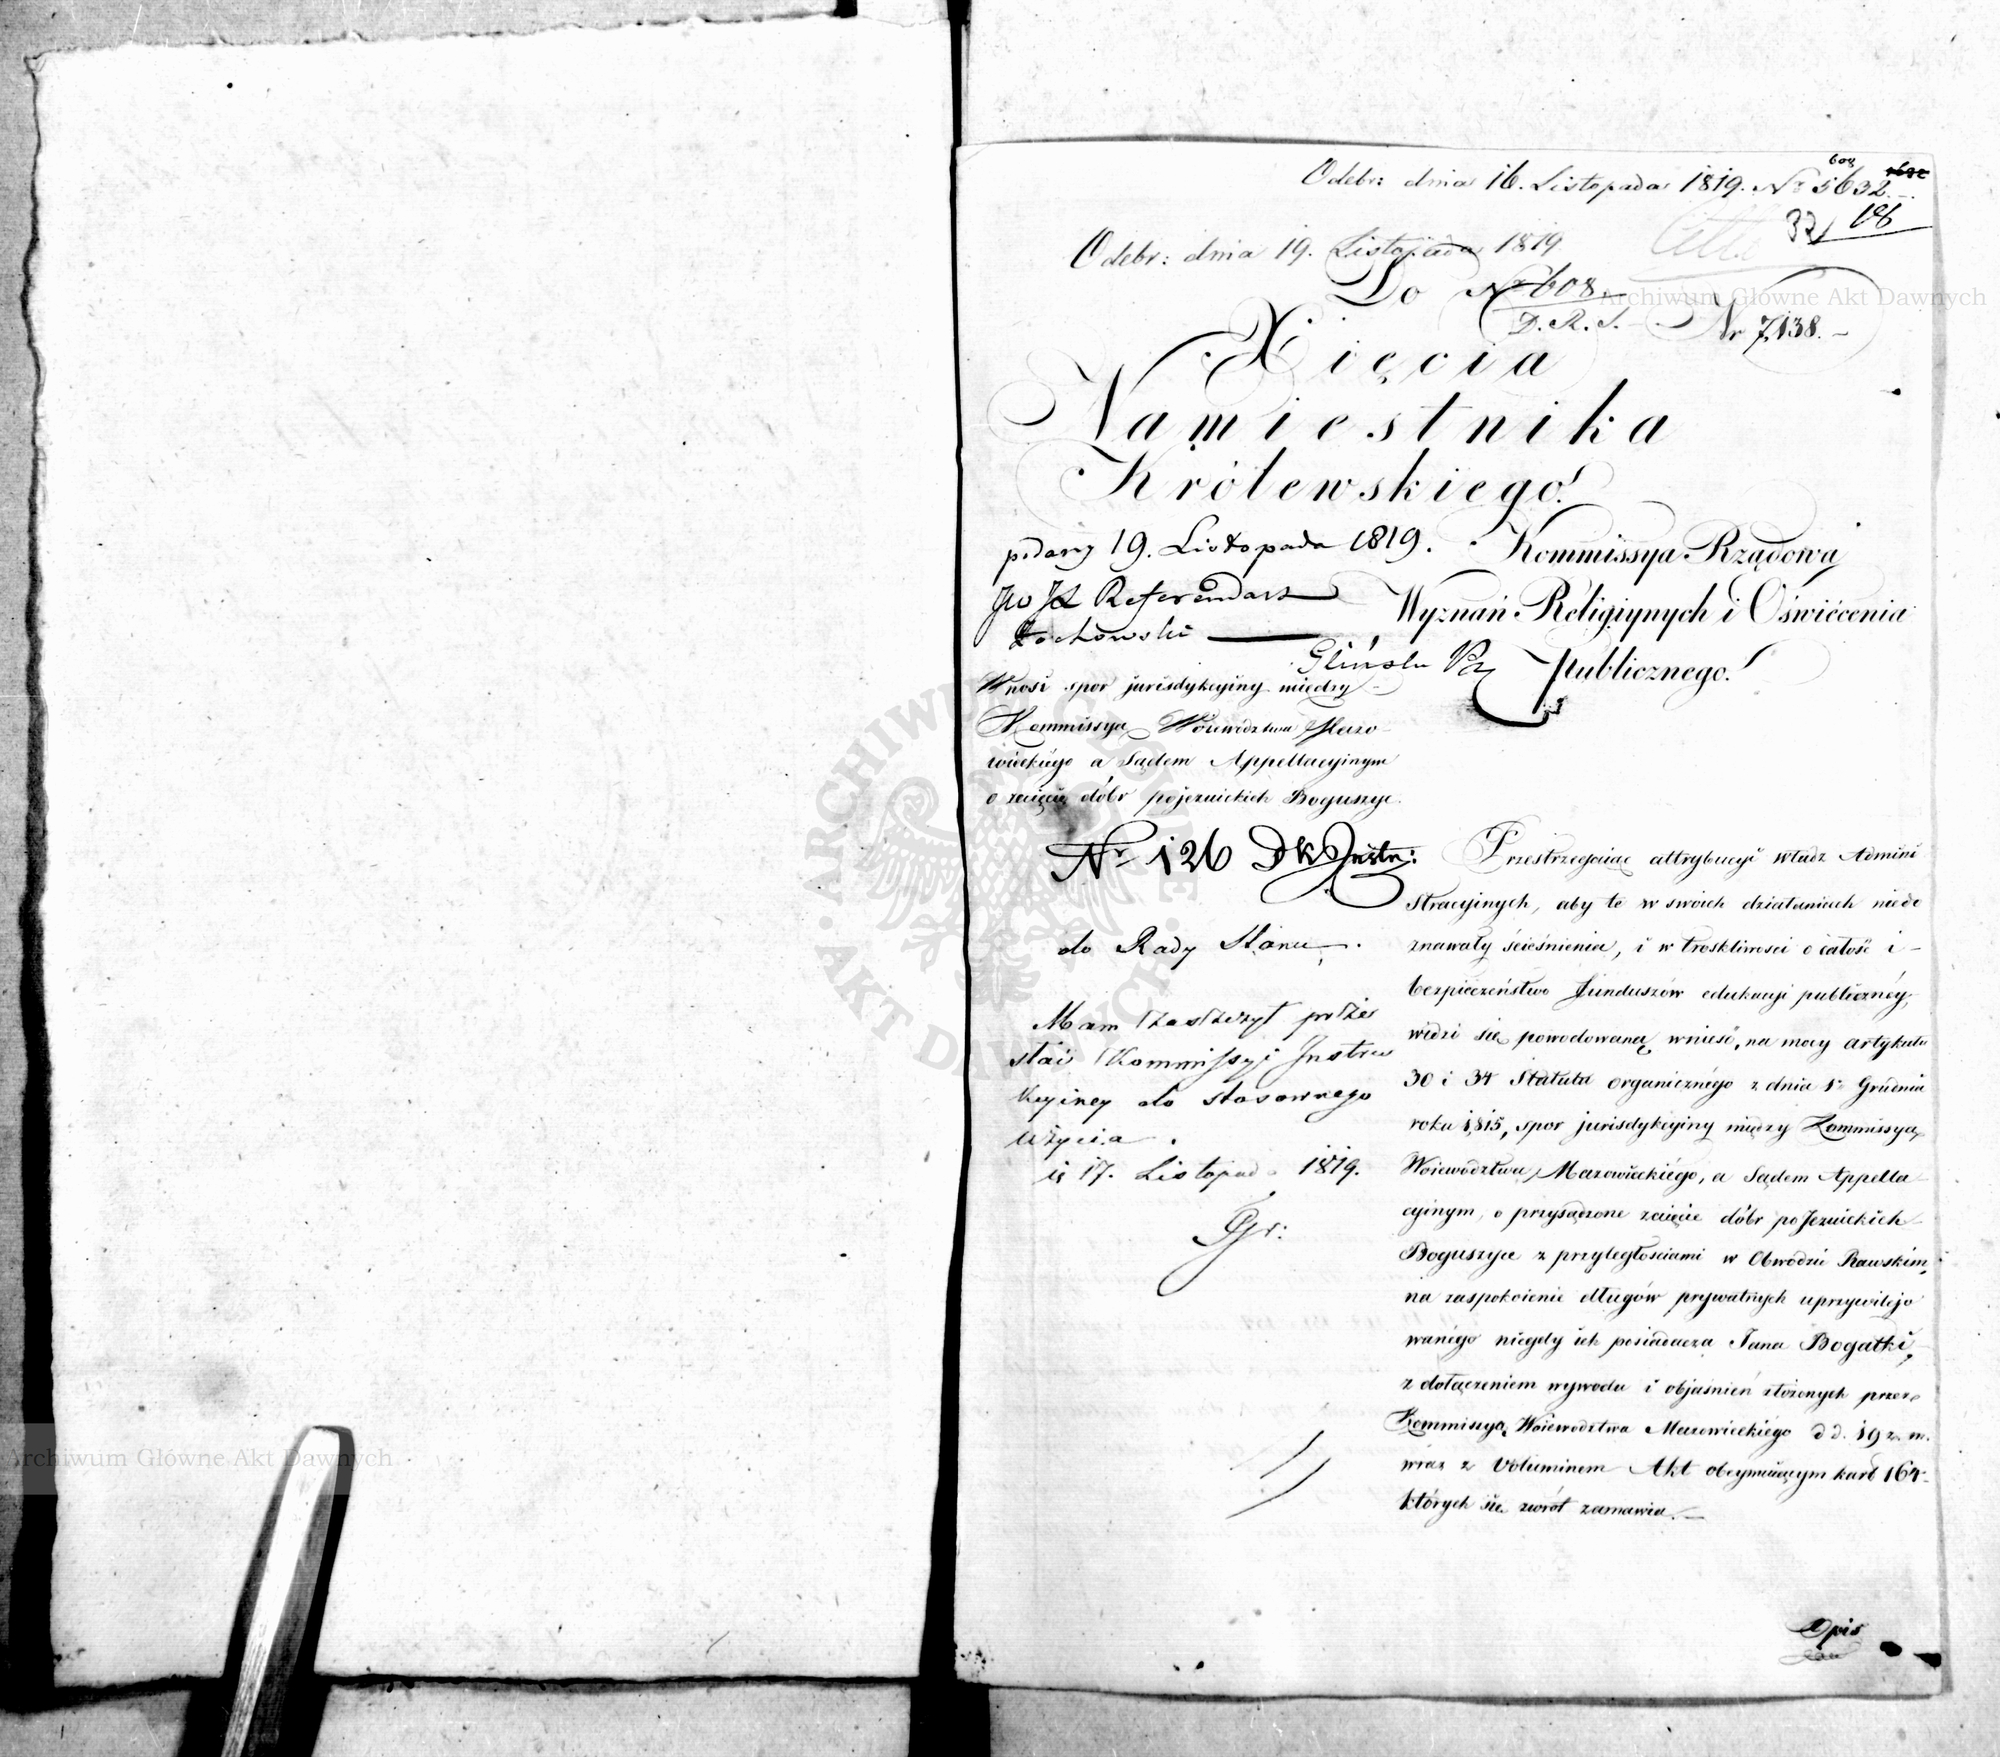 Odebr: dnia 16. Listopada 1819. Nr 5632.
32/ 186
Odebr: dnia 19. Listopada 1819
Nr 608.
D.R.S.
Nr 7,138.
Do
Xięcia
Namiestnika
Królewskiego!
podany 19. Listopada 1819.
JW JX Referendarz
Kommissya Rządowa
Wyznań Religiynych i Oświécenia
Publicznego!
Wnosi spor jurisdykcyiny między
Kommissyą Woiewództwa Mazo-
wieckiego a Sądem Appellacyinym
o zaięcie dóbr pojezuickich Boguszyc.
Nr 126
do Rady Stanu.
Mam zaszczyt przes
łać Kommissyi Instru
kcyiney do stosownego
użycia.
17. Listopad 1819.
Gr:
Przestrzegaiąc attrybucyi władz Admini
stracyinych, aby te w swoich działaniach niedo
znawały ścieśnienia, i w troskliwosci o całość i -
bezpieczeństwo funduszów edukacyi publicznéy,
widzi się powodowaną wnieść, na mocy artykułu
30 i 34 Statutu organicznégo z dnia 1o Grudnia
roku 1815, spor jurisdykcyiny między Kommissyą
Woiewództwa Mazowieckiégo, a Sądem Appella
cyinym, o przysądzone zaięcie dóbr poJezuickich
Boguszyce z przyległosciami w Obwodzie Rawskim,
na zaspokoienie długów prywatnych uprzywilejo
wanégo niegdy ich posiadacza Jana Bogatki,
z dołączeniem wywodu i objaśnień złożonych przez
Kommissyą Woiewództwa Mazowieckiégo d d. 19 z. m.
wraz z Voluminem Akt obeymuiącym kart 164
których się zwrót zamawia. -
Opis
Archiwum Główne Akt Dawnych
Archiwum Główne Akt Dawnych
ARCHIWUM GŁÓWNE · AKT DAWNYCH ·